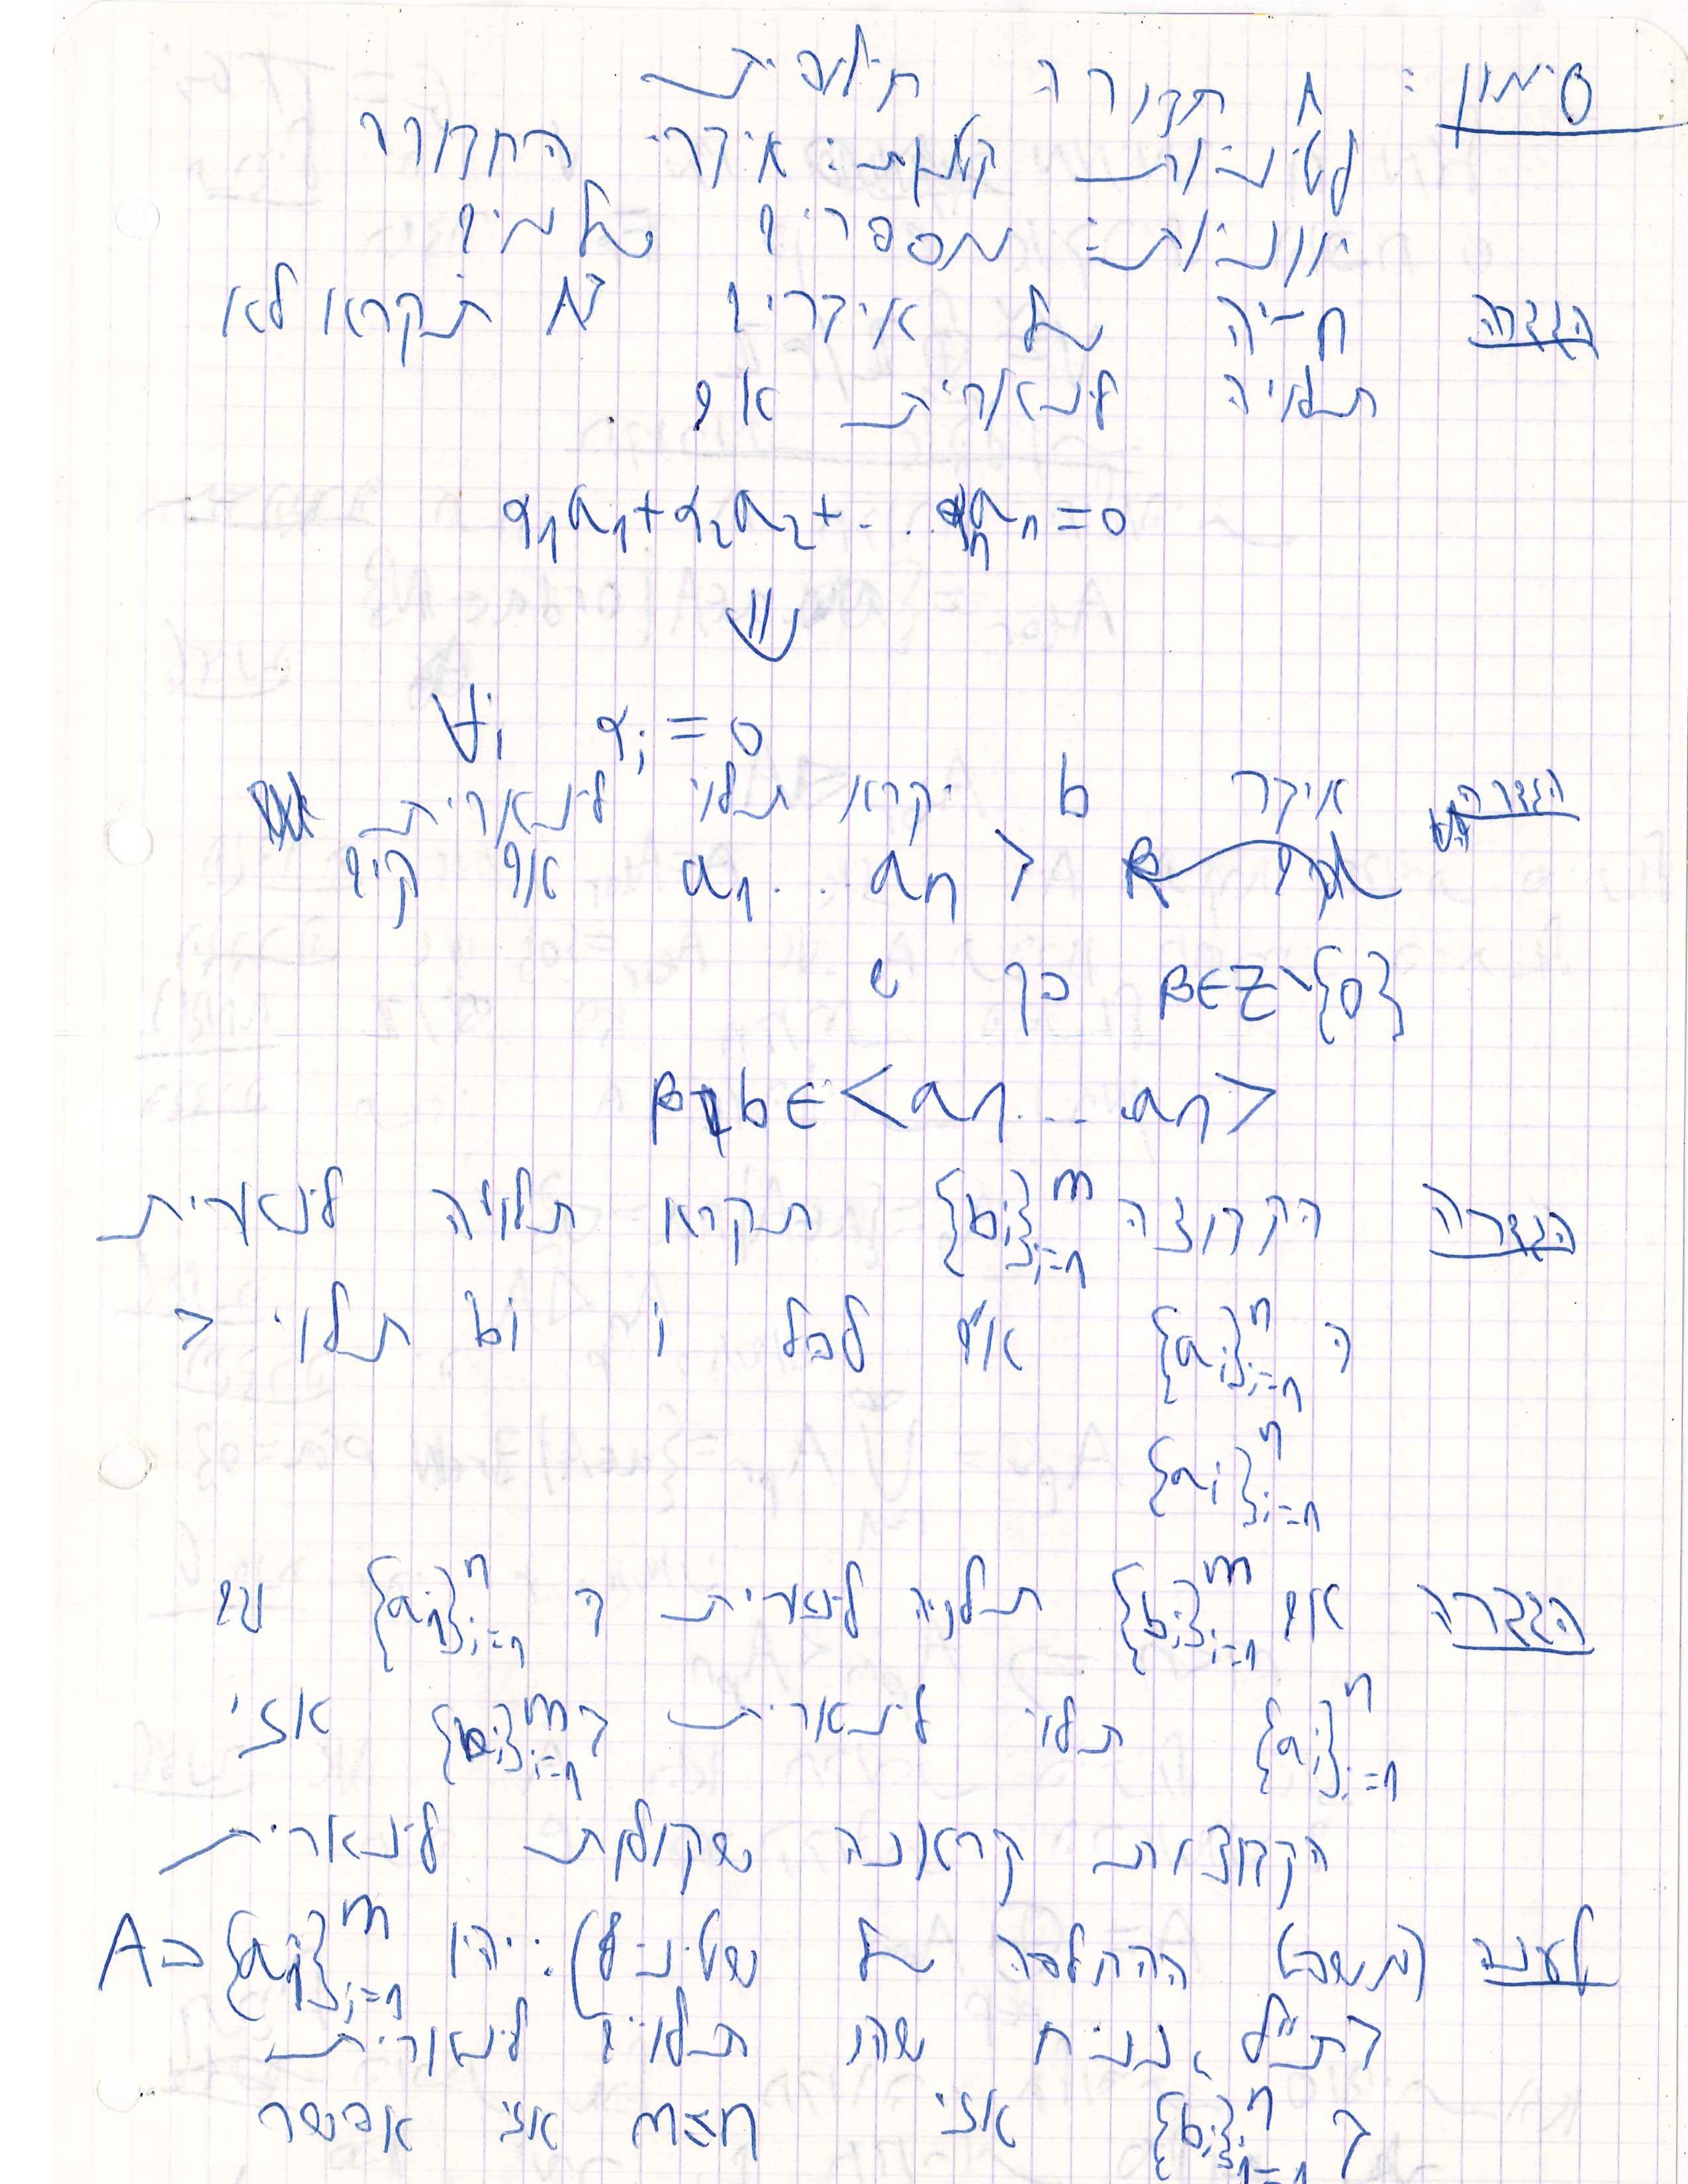 סימון: A חבורה חילופית
לטיניות קטנות: איברי החבורה
יווניות: מספרים שלמים
הגדרה קב' של איברים ב A תקרא לא
תלויה לינארית אם
α₁a₁+α₂a₂+... αₙaₙ=0
⇓
∀i αᵢ=0
הגדרה איבר b יקרא תלוי לינארית
ב a₁...aₙ אם קיים
β∈Z\{0} כך ש
βb∈<a₁...aₙ>
הגדרה הקבוצה {bᵢ}ᵢ₌₁ᵐ תקרא תלויה לינארית
ב {aᵢ}ᵢ₌₁ⁿ אם לכל i bᵢ תלוי ב
{aᵢ}ᵢ₌₁ⁿ
הגדרה אם {bᵢ}ᵢ₌₁ᵐ תלויה לינארית ב {aᵢ}ᵢ₌₁ⁿ וגם
{aᵢ}ᵢ₌₁ⁿ תלוי לינארית ב {bᵢ}ᵢ₌₁ᵐ אזי
הקבוצות קראנה שקולות לינארית
למה (משפט ההחלפה של שטיניץ): יהיו {aᵢ}ᵢ₌₁ᵐ ב A
בת"ל, נניח שהן תלויים לינארית
ב {bᵢ}ᵢ₌₁ⁿ אזי m≤n אזי אפשר